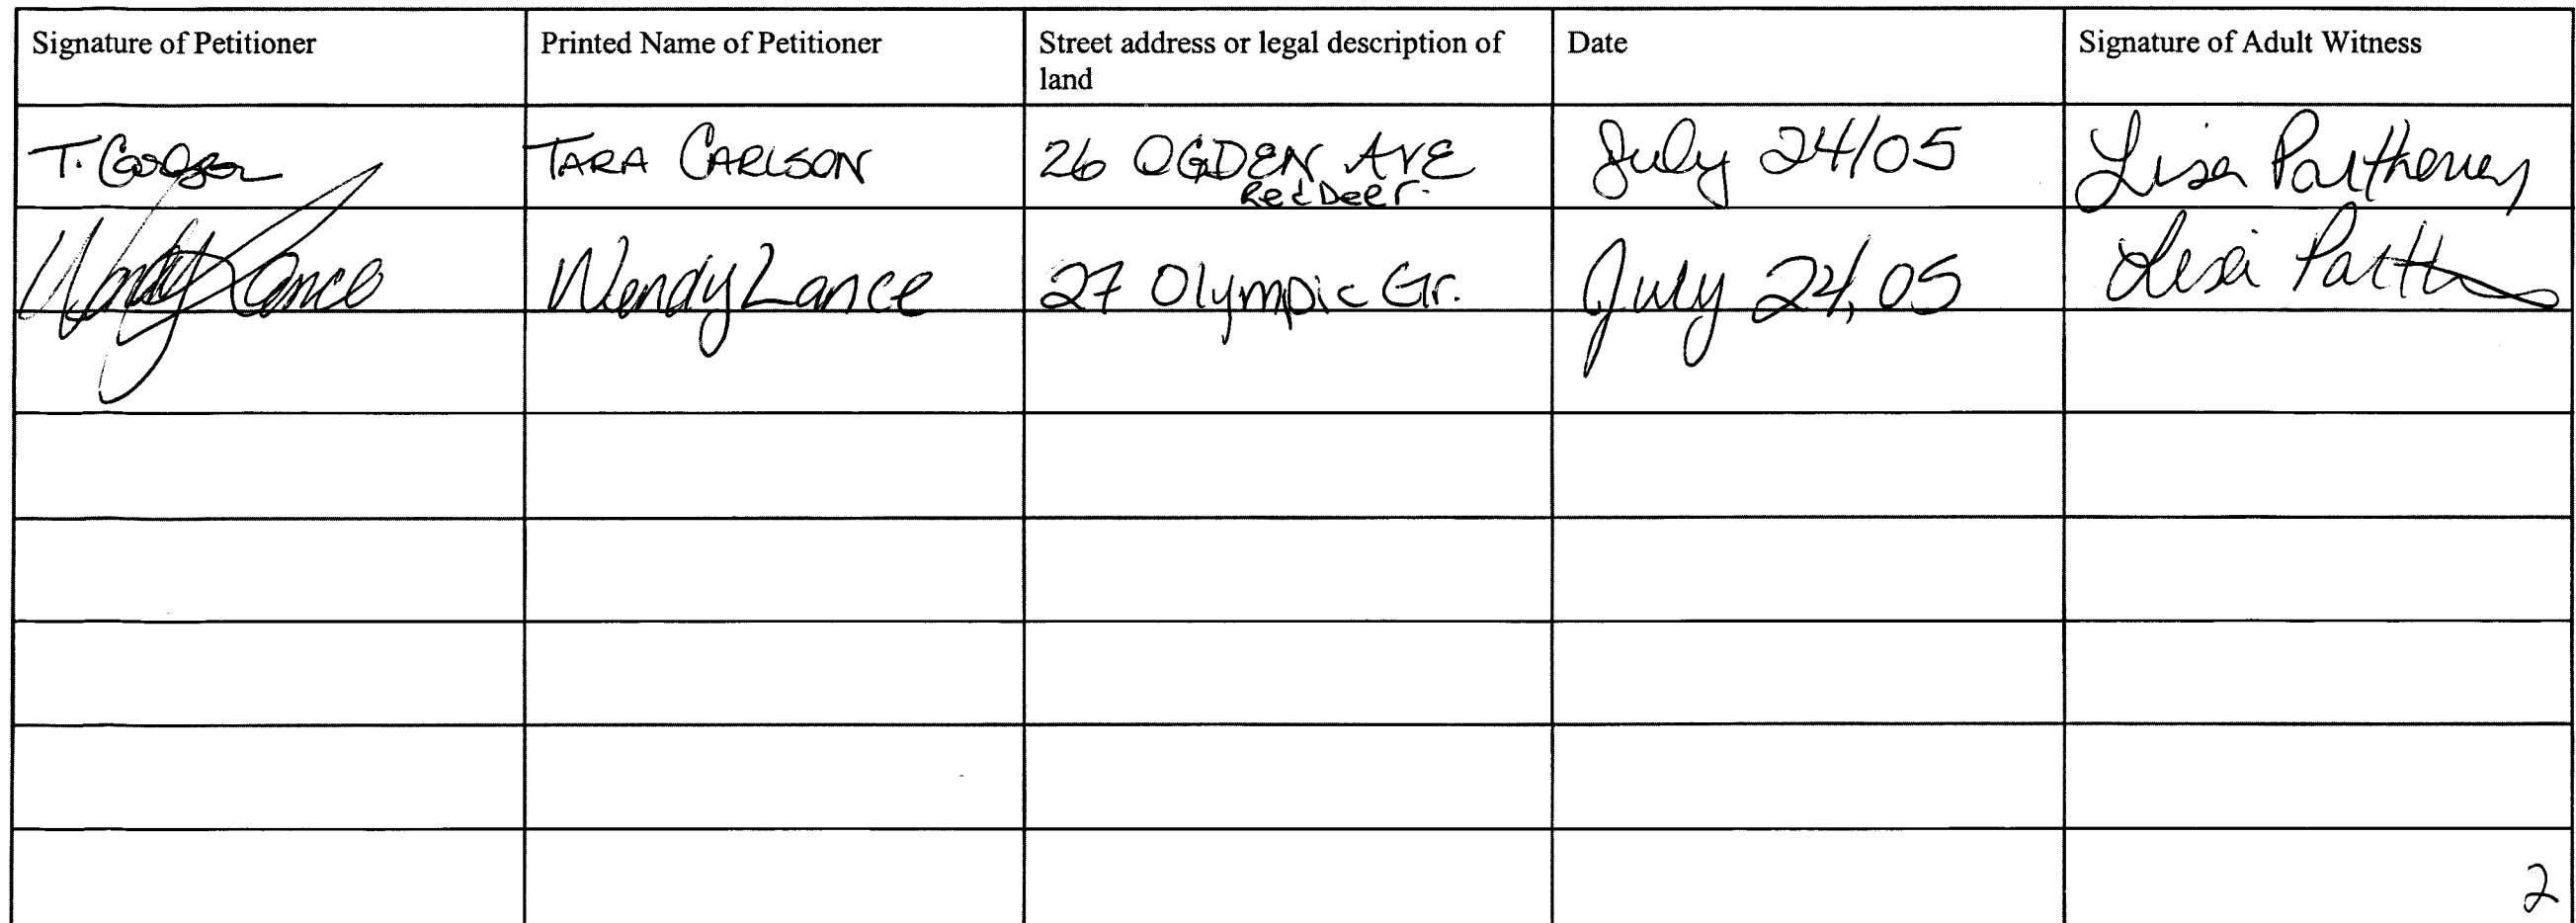 Signature of Petitioner Printed Name of Petitioner Street address or legal description of land Date Signature of Adult Witness
T. Carlson TARA CARLSON 26 OGDEN AVE July 24/05 Lisa Partheney
Red Deer.
Wendy Lance Wendy Lance 27 Olympic Gr. July 24, 05 Lisa
2